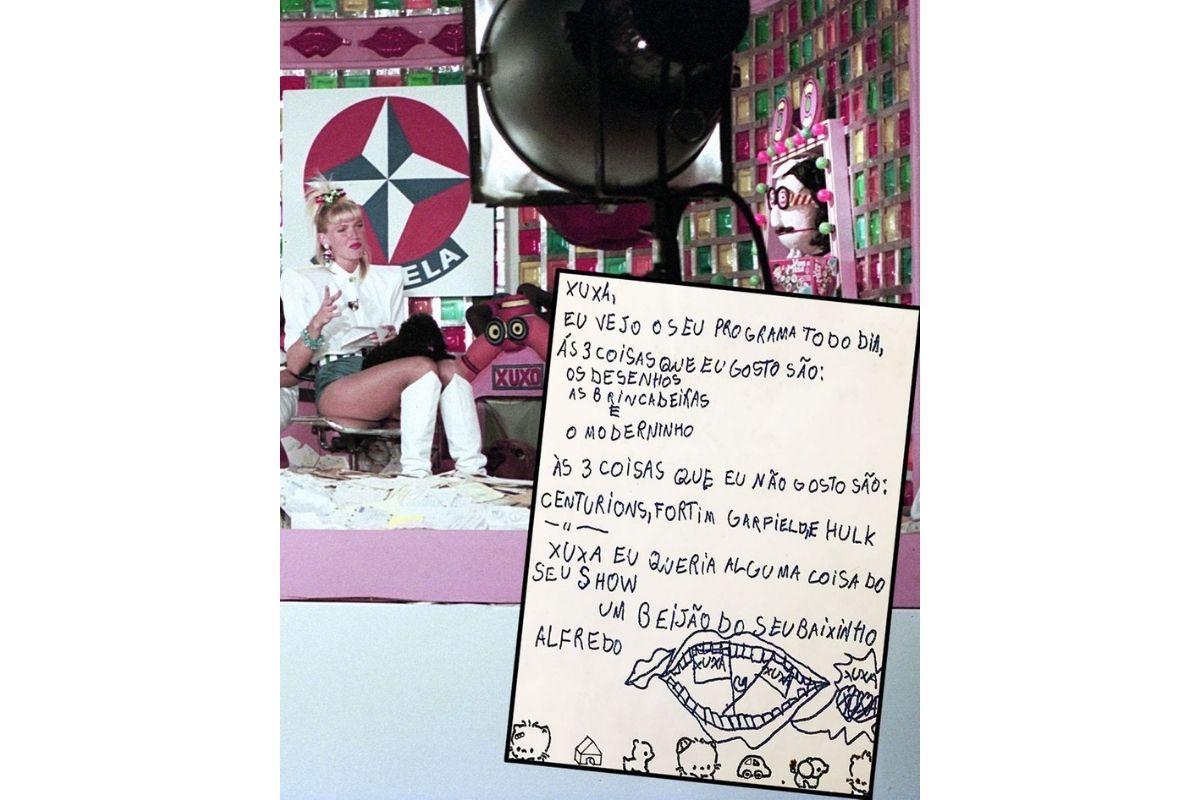 ELA
XUXO
XUXA,
EU VEJO O SEU PROGRAMA TODO DIA,
ÁS 3 COISAS QUE EU GOSTO SÃO:
OS DESENHOS
AS BRINCADEIRAS
E
O MODERNINHO
ÀS 3 COISAS QUE EU NÃO GOSTO SÃO:
CENTURIONS, FORTIM GARFIELD, E HULK
— " —
XUXA EU QUERIA ALGUMA COISA DO
SEU SHOW
UM BEIJÃO DO SEU BAIXINHO
ALFREDO
XUXA
XUXA
XUXA
XUXA